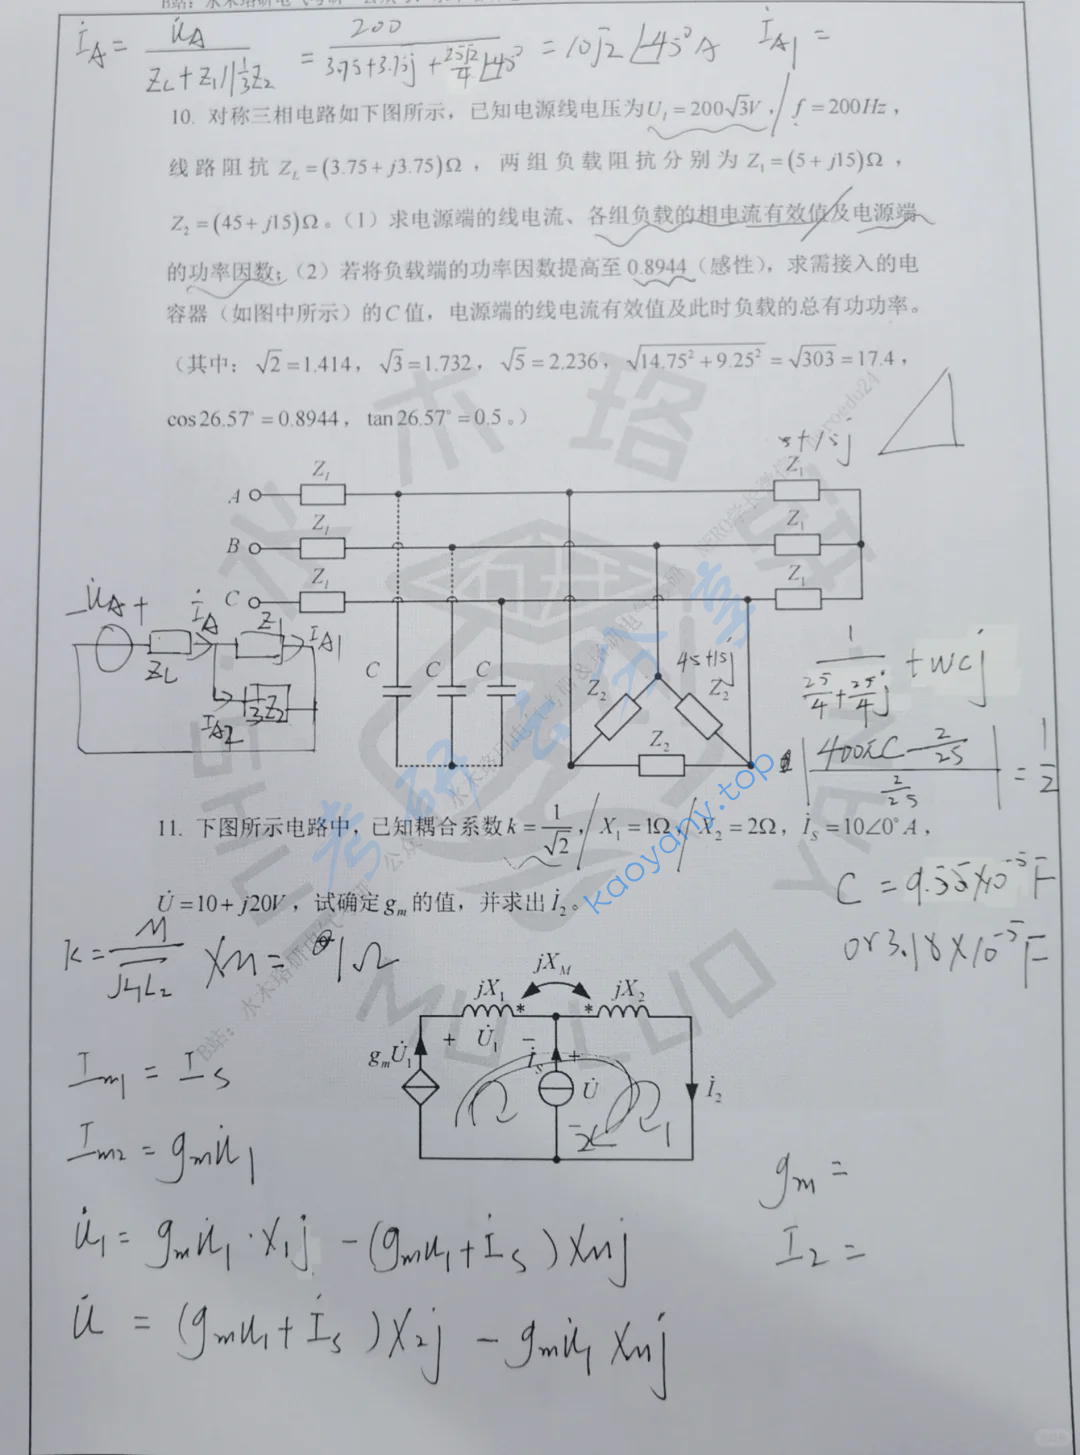 İ_A = U̇_A / (Z_L + Z_1 // ⅓Z_2) = 200 / (3.75+3.75j + 25√2/4 ∠45°) = 10√2 ∠45° A   İ_A1 =
10. 对称三相电路如下图所示，已知电源线电压为U_l = 200√3V，f = 200Hz，
线路阻抗 Z_L = (3.75 + j3.75)Ω，两组负载阻抗分别为 Z_1 = (5 + j15)Ω，
Z_2 = (45 + j15)Ω。（1）求电源端的线电流、各组负载的相电流有效值及电源端
的功率因数；（2）若将负载端的功率因数提高至 0.8944（感性），求需接入的电
容器（如图中所示）的C 值，电源端的线电流有效值及此时负载的总有功功率。
（其中：√2 = 1.414，√3 = 1.732，√5 = 2.236，√(14.75² + 9.25²) = √303 = 17.4，
cos 26.57° = 0.8944，tan 26.57° = 0.5。）
5+15j
A Z_l Z_1
B Z_l Z_1
C Z_l Z_1
U̇_A + İ_A Z_1 I_A1
Z_L
⅓Z_2
I_A2
C C C
Z_2 45+15j Z_2
Z_2
1 / (25/4 + 25/4 j) + wcj
| (400πC - 2/25) / (2/25) | = 1/2
C = 9.55×10⁻⁵F
or 3.18×10⁻⁵F
11. 下图所示电路中，已知耦合系数 k = 1/√2，X_1 = 1Ω，X_2 = 2Ω，İ_S = 10∠0° A，
U̇ = 10 + j20V，试确定 g_m 的值，并求出 İ_2。
k = M / √L_1L_2   X_M = 1Ω
jX_M
jX_1 * * jX_2
+ U̇_1 −
g_mU̇_1 İ_S + U̇ − İ_2
2 1
I_m1 = I_S
I_m2 = g_m U̇_1
U̇_1 = g_m U̇_1 · X_1 j − (g_m U_1 + İ_S) X_M j
U̇ = (g_m U_1 + İ_S) X_2 j − g_m U̇_1 X_M j
g_m =
I_2 =
kaoyany.top